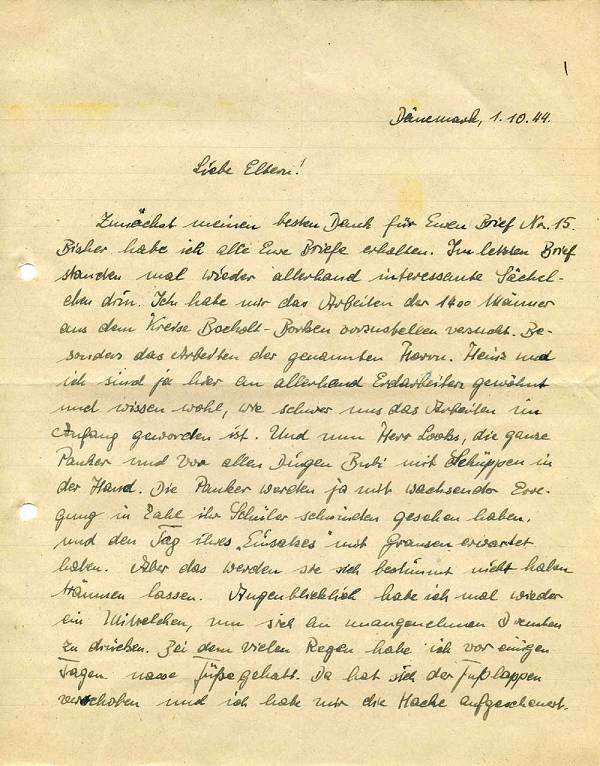 1
Dänemark, 1.10.44.
Liebe Eltern!
Zunächst meinen besten Dank für Euren Brief Nr. 15.
Bisher habe ich alle Eure Briefe erhalten. Im letzten Brief
standen mal wieder allerhand interessante Sächel-
chen drin. Ich habe mir das Arbeiten der 1400 Männer
aus dem Kreise Bocholt-Borken vorzustellen versucht. Be-
sonders das Arbeiten der genannten Herrn. Heinz und
ich sind ja hier an allerhand Erdarbeiten gewöhnt
und wissen wohl, wie schwer uns das Arbeiten im
Anfang geworden ist. Und nun Herr Looks, die ganze
Pauker und vor allen Dingen Bubi mit Schüppen in
der Hand. Die Pauker werden ja mit wachsender Erre-
gung in Zahl ihr Schüler schwinden gesehen haben,
und den Tag ihres "Einsatzes" mit Grausen erwartet
haben. Aber das werden sie sich bestimmt nicht haben
träumen lassen. Augenblicklich habe ich mal wieder
ein Mittelchen, um sich an unangenehmen Diensten
zu drücken. Bei dem vielen Regen habe ich vor einigen
Tagen nasse Füße gehabt. Da hat sich der Fußlappen
verschoben und ich habe mir die Hacke aufgescheuert.